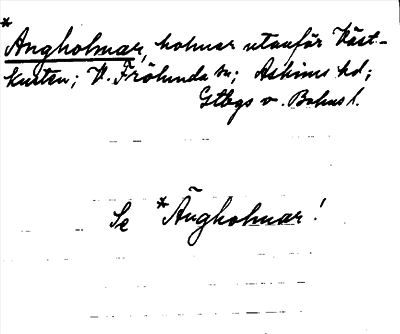 *
Angholmar, holmar utanför Väst-
kusten; V. Frölunda sn; Askims hd;
Gtbgs o. Bohus l.
Se *Ängholmar!